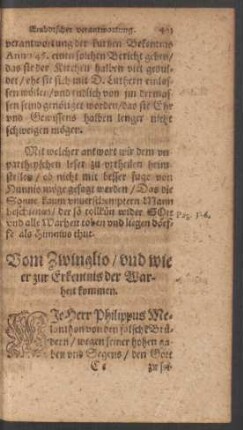 verantwortung.
verantwortung der kurtzen Bekentnis
Anno 45. einen solchen Bericht geben/
das sie der Kirchen halben viel gedul-
det / ehe sie sich mit D. Luthern einlas-
sen wöllen / vnd entlich von jm dermas-
sen seind genötiget worden / das sie Ehr
vnd Gewissens halben lenger nicht
schweigen mögen.
Mit welcher antwort wir dem vn
partheyschen leser zu vrtheilen heim
stellen / ob nicht mit besser fuge von
Hunnio möge gesagt werden / Das die
Sonne kaum vnuerschemptern Mann
beschienen / der so wider Gott
vnd alle Warheit toben vnd liegen dörf-
fe als Hunnius thut.
Vom Zwinglio / vnd wie
er zur Erkentnis der War-
heit kommen.
WJe Herr Philippus Me-
lanthon von den falschen Brü-
dern / wegen seiner hohen ga-
ben vnd Segens / den Gott